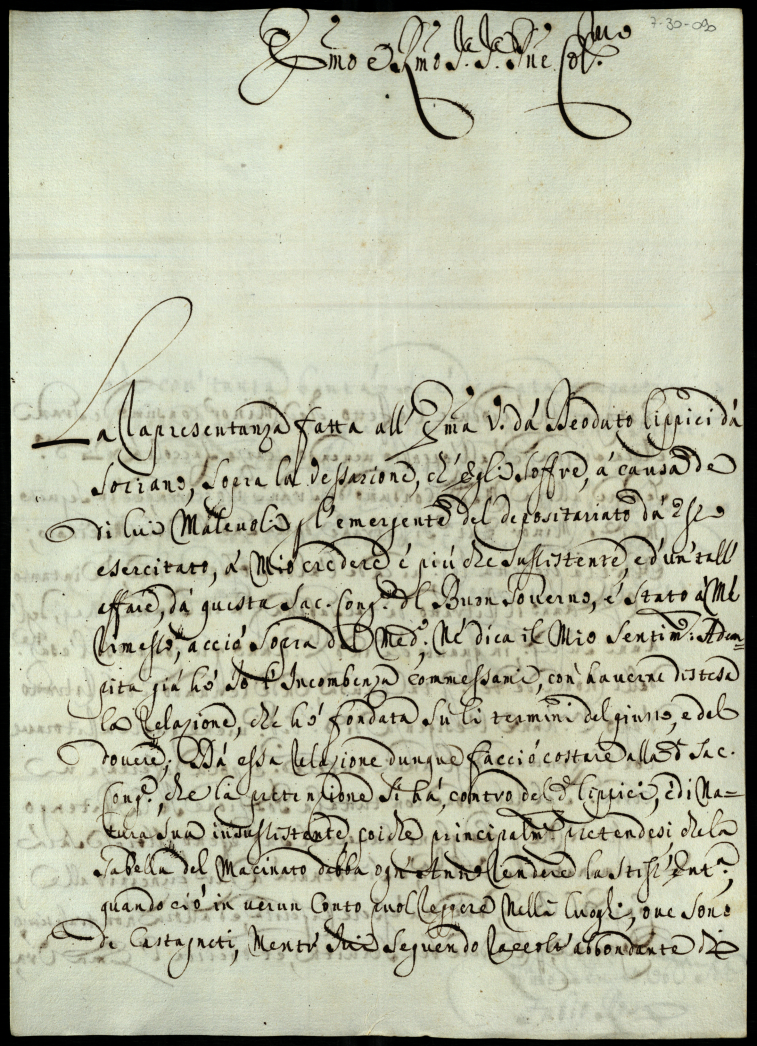 7-30-090
Emo e Rmo Sr. Sr. Pne Colmo
La Rapresentanza fatta all' Ema V.ª dà Deoduto Lippici dà
Soriano, sopra la vessazione, ch' egli soffre, à causa de
di lui Malevoli, l'emergente del depositariato dà
esercitato, à Mio credere è più che sussistente, e d'un tall'
affare, dà questa Sac. Cong.e del Buon Governo, è stato à Me
rimesso, acciò sopra del Med.o, Ne dica il Mio Sentim.o: Adem-
pita già hò Io l'Incombenza commessami, con haverne distesa
la Relazione, che hò fondata sù li termini del giusto, e del
dovere; Dà essa Relazione dunque faccio costare alla d.a Sac.
Cong.e, che la pretenzione si hà, contro del d.o Lippici, è di Na-
tura sua insussistente, poiche principalm.te pretendesi che la
Tabella del Macinato debba ogn' Anno rendere la stess' Ent.a,
quando ciò in verun Conto puol reggere Nelli luoghi, ove sono
di Castagneti, Mentr' Ivi seguendo raccolt' abbondante di